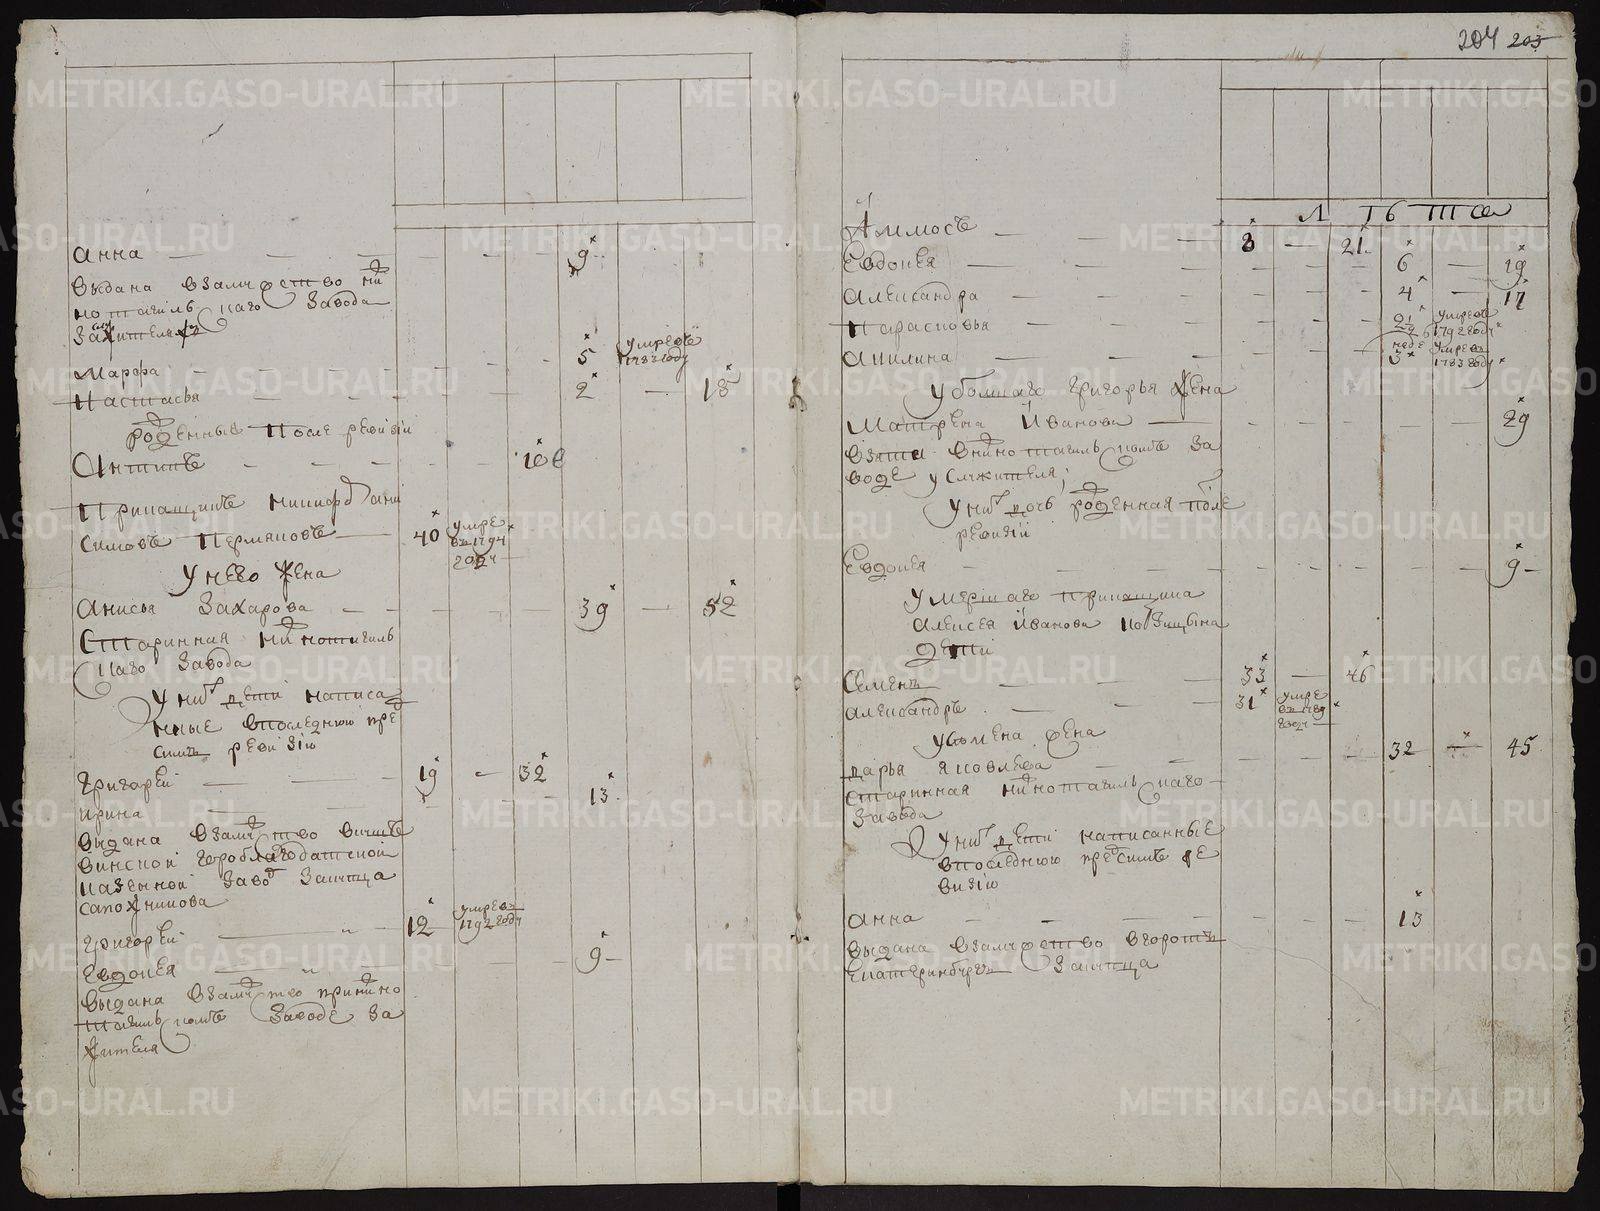 204 203
Анна — — — — — — 9
выдана взамужство ни
но тагиль скаго завода
жителя
Марфа — — — — — — 5 умре въ 1783 году
Настасья — — — — — 2 — 15
рожденные после ревизи
Антипъ — — — — —
Прикащикъ Никифор
Симовъ Пермяковъ — 40 умре въ 1794 году
У нево жена
Анисья Захарова — — — — 39 — 52
Старинная нинотагиль
скаго завода
У них дети написа
нные впоследнюю пре
симъ ревизию
Григорей — — — 19 — 32
Ирина — — — — — 13
выдана взамужство
винской гороблагодатской
казенной завод
Сапожникова
Григорей — 12 умре въ 1792 году
Евдокея — — — — — 9 —
выдана взамужство принино
тагильскомъ заводе за
жителя
Л ТЪ Та
Аммосъ — — — 8 — 21
Евдокея — — — — — — 6 — 19
Александра — — — — — 4 — 17
Парасковья — — — — умре въ 1792 году
Акилина — — — — — 3 умре въ 1783 году
У большаго Григорья жена
Матрена Иванова — — — — — — 29
взята внинотагильскомъ за
воде у служителя;
У них дочь рожденная после
ревизии
Евдокея — — — — — — 9 —
Умершаго прикащика
Алексея Иванова
дети
Семенъ — — 33 — 46
Александръ — — 31 умре въ 1789 году
У Семена жена
Дарья Яковлева — — — — — 32 — 45
старинная нинотагильскаго
завода
У них дети написанные
впоследнюю пред симъ ре
визию
Анна — — — — — — — 13
выдана взамужство вгородъ
Екатеринбургъ
METRIKI.GASO-URAL.RU